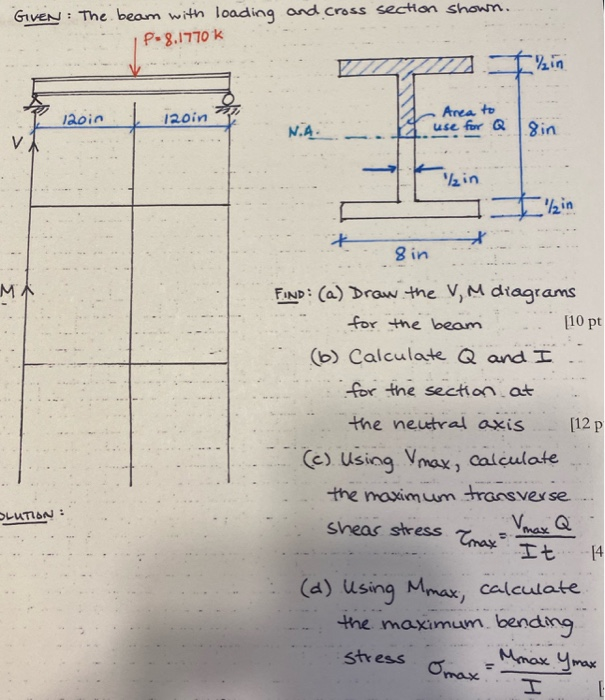 GIVEN: The beam with loading and cross section shown.
P=8.1770 k
120in 120in
V
M
1/2 in
Area to
use for Q
N.A.
8in
1/2 in
1/2 in
8 in
FIND: (a) Draw the V, M diagrams
for the beam [10 pt
(b) Calculate Q and I
for the section at
the neutral axis [12 p
(c) Using Vmax, calculate
the maximum transverse
shear stress τmax = Vmax Q / I t [4
(d) Using Mmax, calculate
the maximum bending
stress σmax = Mmax ymax / I [
OLUTION: